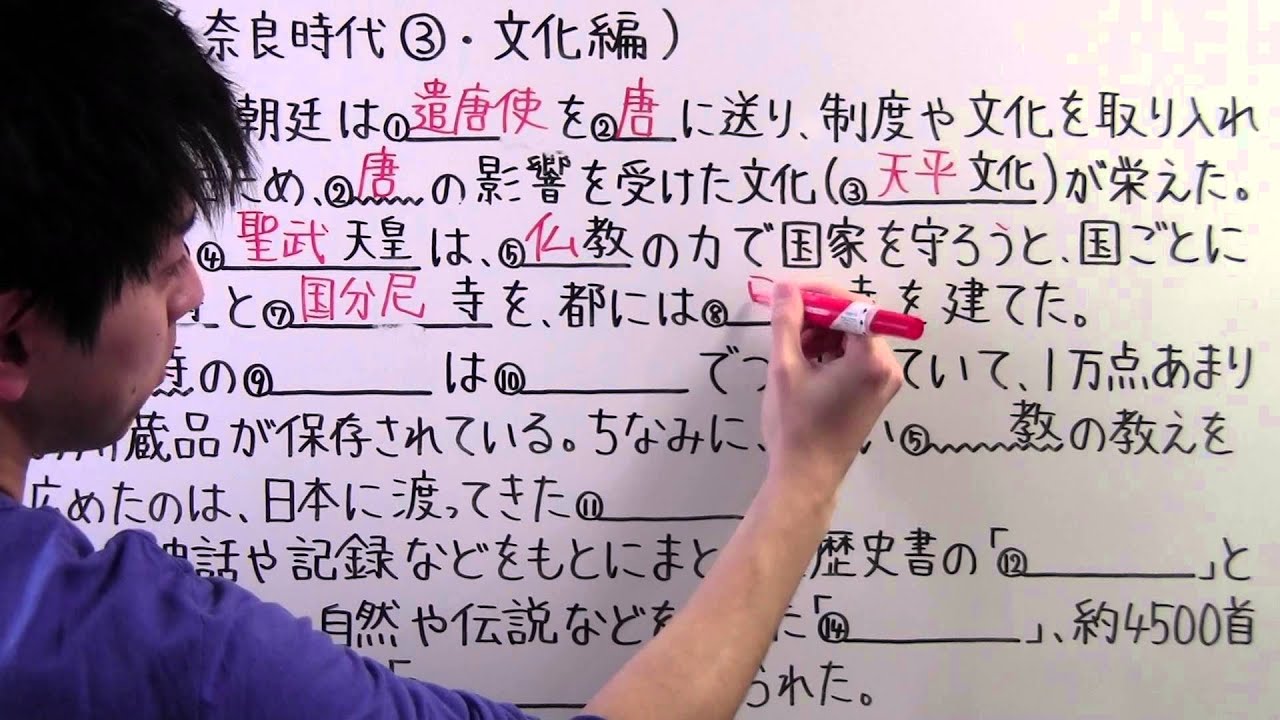 奈良時代③・文化編）
朝廷は①遣唐使を②唐に送り、制度や文化を取り入れ
ため、②唐の影響を受けた文化(③天平文化)が栄えた。
④聖武天皇は、⑤仏教の力で国家を守ろうと、国ごとに
と⑦国分尼寺を、都には⑧ 寺を建てた。
寺の⑨ は⑩ でつ ていて、1万点あまり
蔵品が保存されている。ちなみに、 い⑤ 教の教えを
広めたのは、日本に渡ってきた⑪
神話や記録などをもとにまと 歴史書の「⑫ 」と
自然や伝説などを に「⑭ 」、約4500首
「 られた。